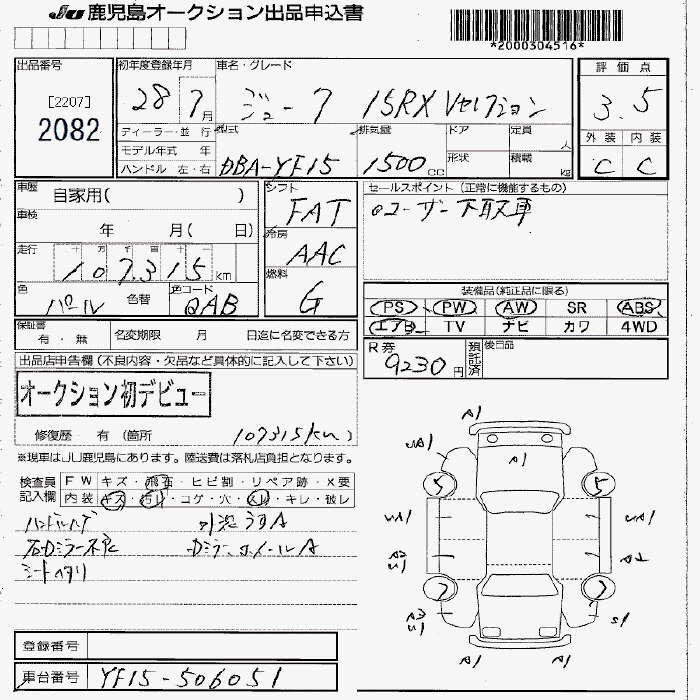 JU 鹿児島オークション出品申込書
*2000304516*
出品番号
[2207]
2082
初年度登録年月
28 7月
車名・グレード
ジューク 15RX Vセレクション
評価点
3.5
外装 内装
C C
ディーラー・並行
モデル年式 年
ハンドル 左・右
型式
DBA-YF15
排気量
1500cc
ドア
形状
定員
人
積載
kg
車歴
自家用( )
車検
年 月( 日)
走行
十 万 千 百 十 一
107315km
色
パール
色替
色コード
QAB
シフト
FAT
冷房
AAC
燃料
G
セールスポイント (正常に機能するもの)
●ユーザー下取車
装備品(純正品に限る)
PS PW AW SR ABS
エアB TV ナビ カワ 4WD
保証書
有・無
名変期限 月 日迄に名変できる方
R券
9230円
預託済
後日品
出品店申告欄(不良内容・欠品など具体的に記入して下さい)
オークション初デビュー
修復歴 有 (箇所 107315km)
※現車はJU鹿児島にあります。陸送費は落札店負担となります。
検査員記入欄
FW キズ・飛石・ヒビ割・リペア跡・X要
内装 キズ・汚れ・コゲ・穴・スレ・キレ・破レ
ハンドルハゲ
右Dミラー不良
シートヘタリ
A1
A1
5 5
7 7
S1
登録番号
車台番号 YF15-506051